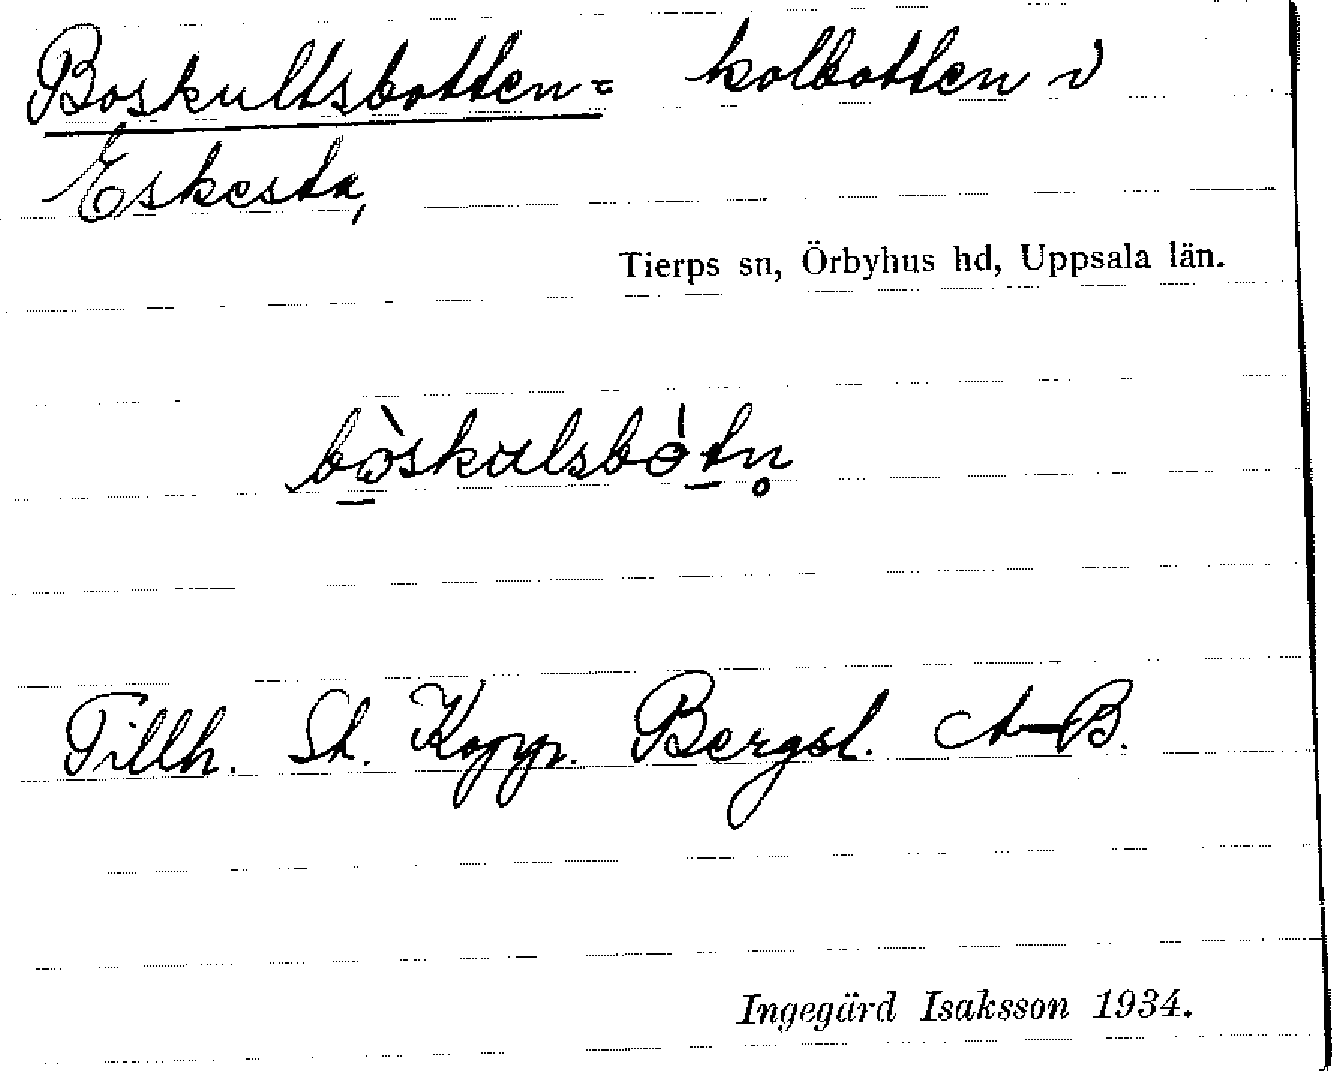 Boskultsbotten = kolbotten i
Eskesta,
Tierps sn, Örbyhus hd, Uppsala län.
bò̱skulsbò̱tn̥
Tillh. St. Kopp. Bergsl. A-B.
Ingegärd Isaksson 1934.